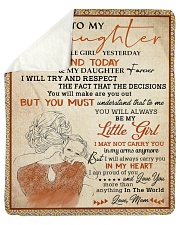 TO MY
Daughter
LE GIRL YESTERDAY
ND TODAY
& MY DAUGHTER Forever
I WILL TRY AND RESPECT
THE FACT THAT THE DECISIONS
You will make are out
BUT YOU MUST understand that to me
YOU WILL ALWAYS
BE MY
Little Girl
I MAY NOT CARRY YOU
in my arms anymore
But I will always carry you
IN MY HEART
I am proud of you
and Love You
more than
anything In The World
Love, Mom